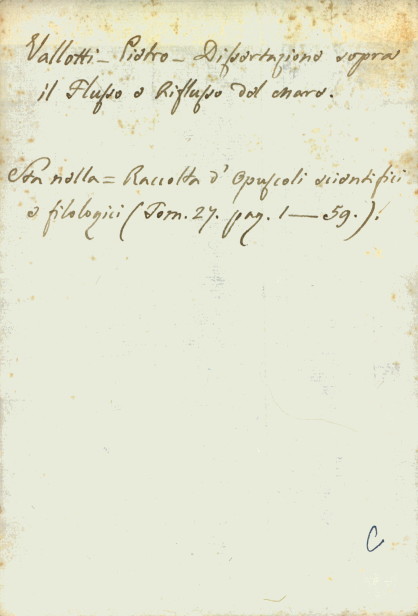 Vallotti – Pietro – Dissertazione sopra
il Flusso e Riflusso del mare.
Sta nella = Raccolta d' Opuscoli scientifici
e filologici (Tom. 27. pag. 1 — 59.).
C